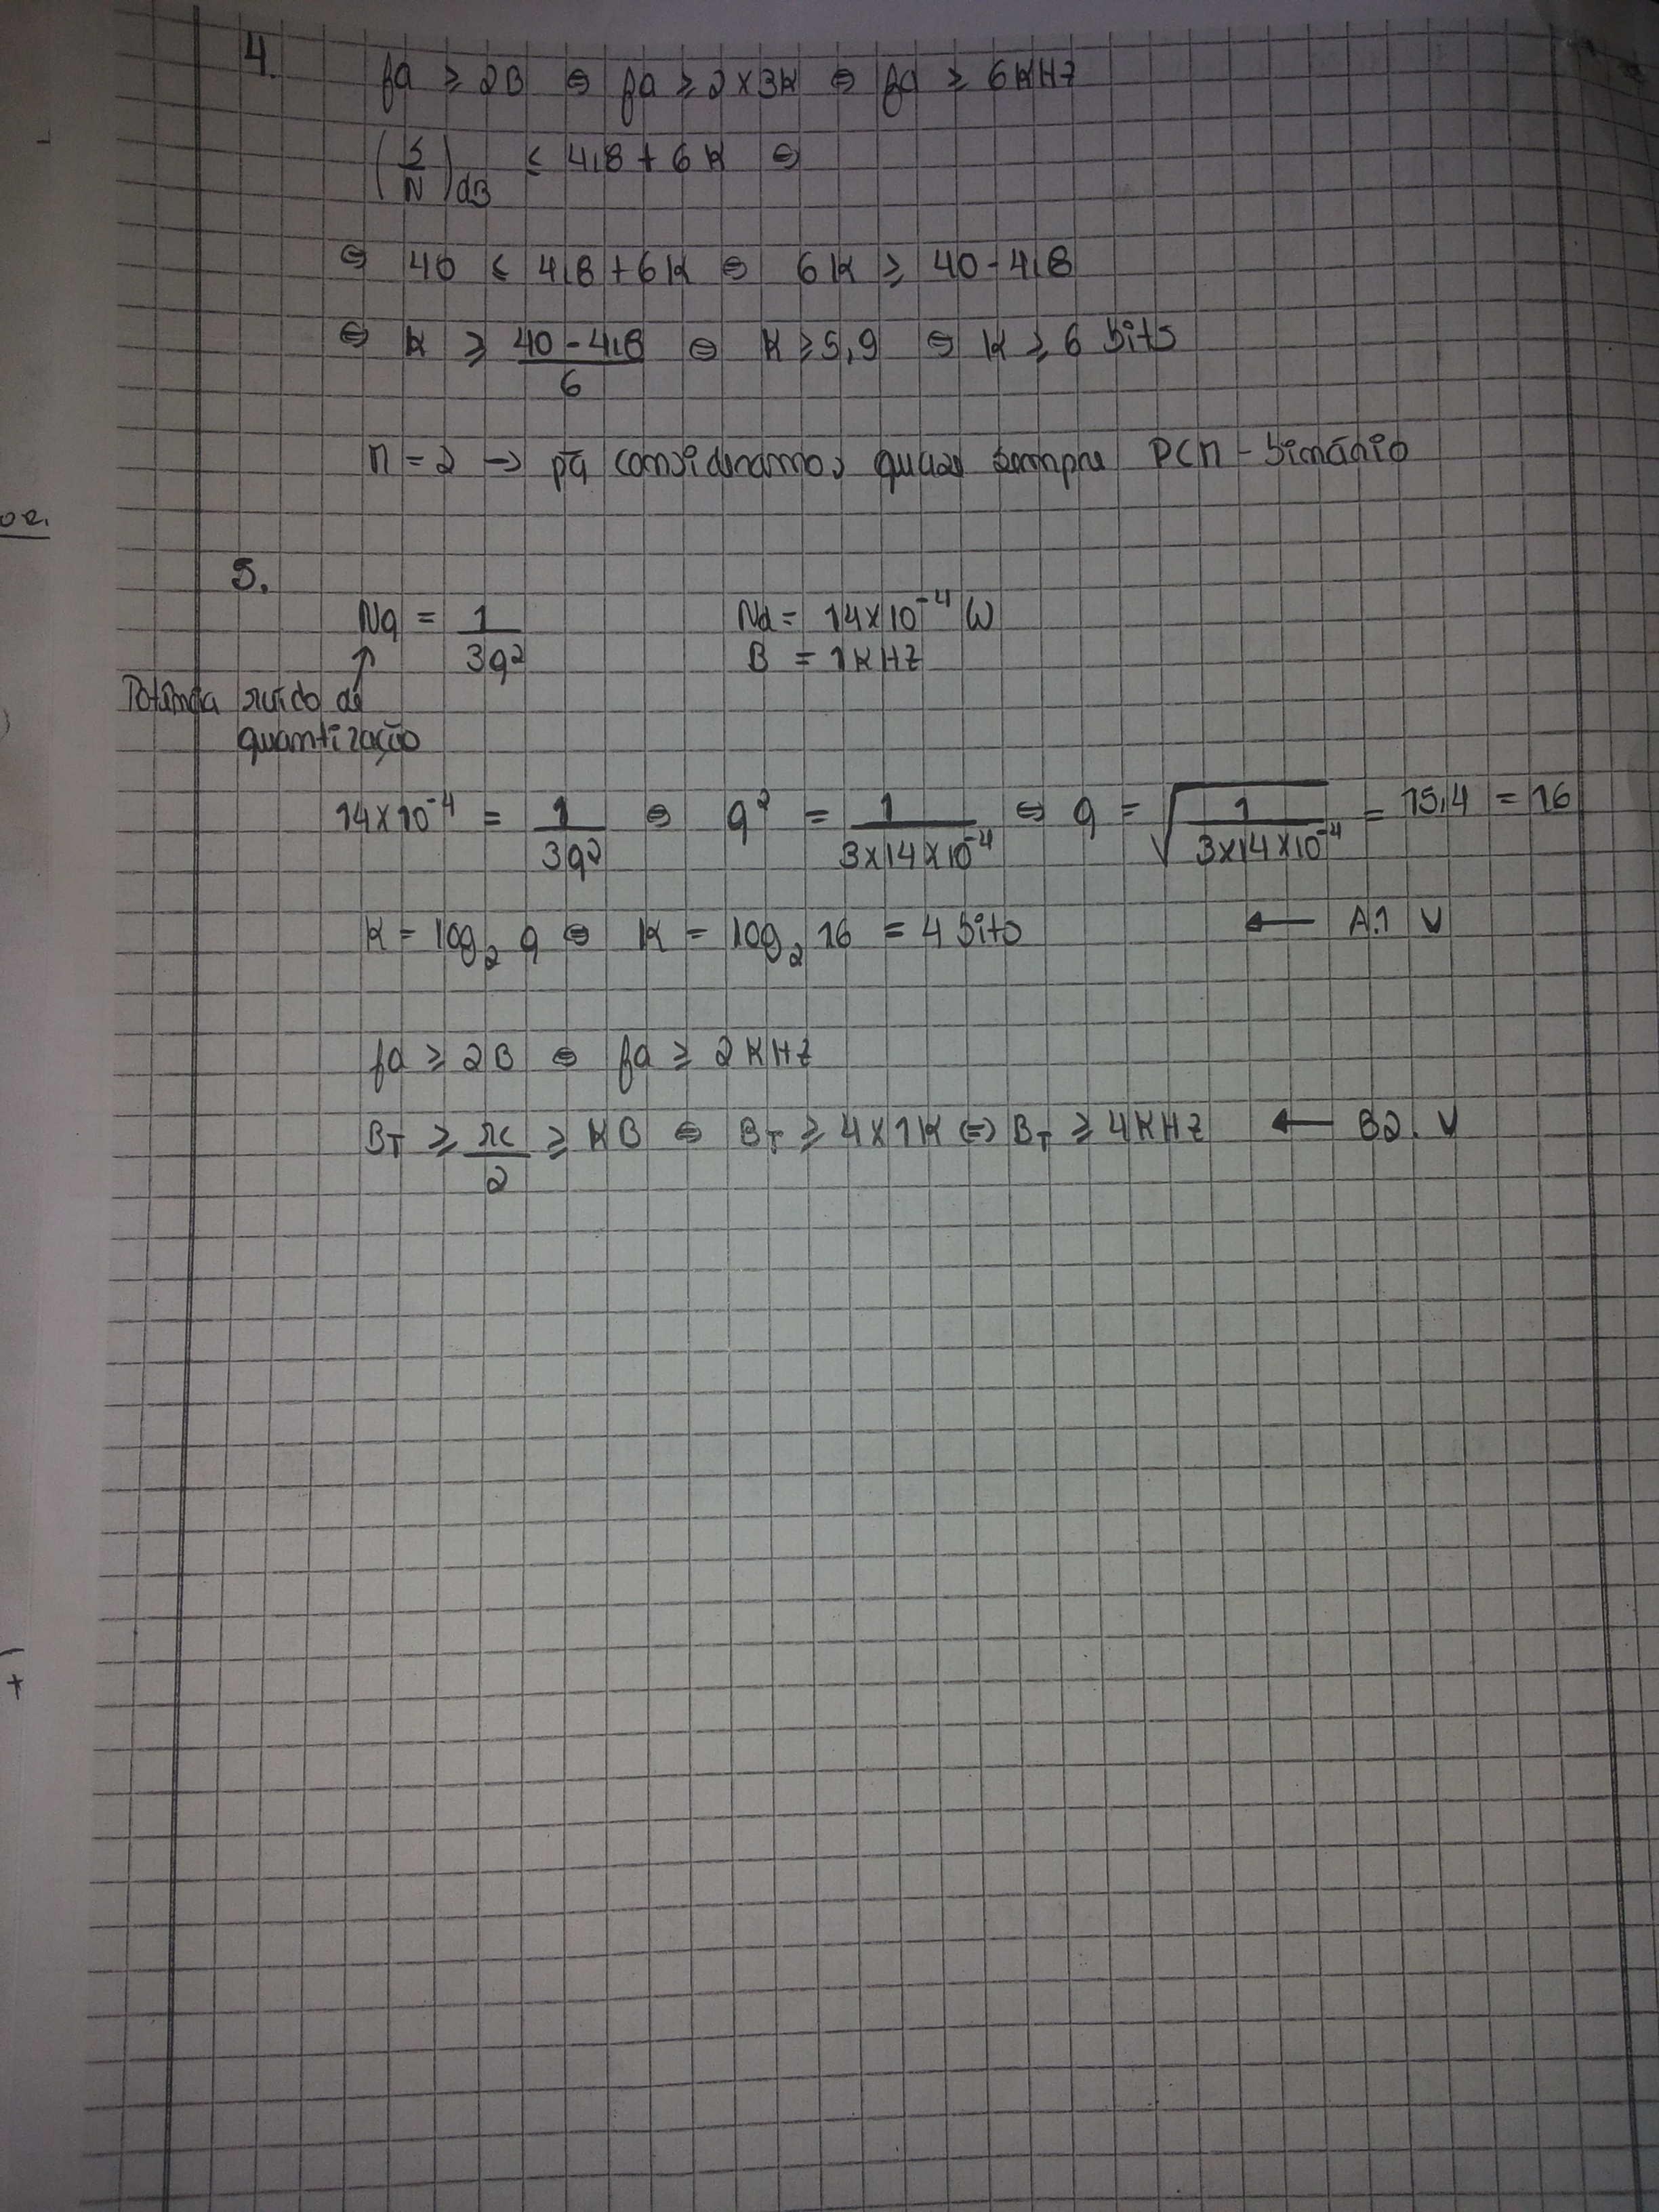 4.
fa ≥ 2B ⇔ fa ≥ 2×3K ⇔ fa ≥ 6KHz
(S/N)dB ≤ 4,8 + 6K ⇔
⇔ 40 ≤ 4,8 + 6K ⇔ 6K ≥ 40 - 4,8
⇔ K ≥ (40 - 4,8)/6 ⇔ K ≥ 5,9 ⇔ K ≥ 6 bits
n = 2 → consideramos quase sempre PCM - binário
5.
Nq = 1/3q² Nd = 14×10⁻⁴ W
↑ B = 1KHz
Potência ruído de
quantização
14×10⁻⁴ = 1/3q² ⇔ q² = 1/(3×14×10⁻⁴) ⇔ q = √(1/(3×14×10⁻⁴)) = 15,4 = 16
K = log₂ q ⇔ K = log₂ 16 = 4 bits ← A.1 V
fa ≥ 2B ⇔ fa ≥ 2KHz
BT ≥ rc/2 ≥ KB ⇔ BT ≥ 4×1K ⇔ BT ≥ 4KHz ← B2. V
oe.
+